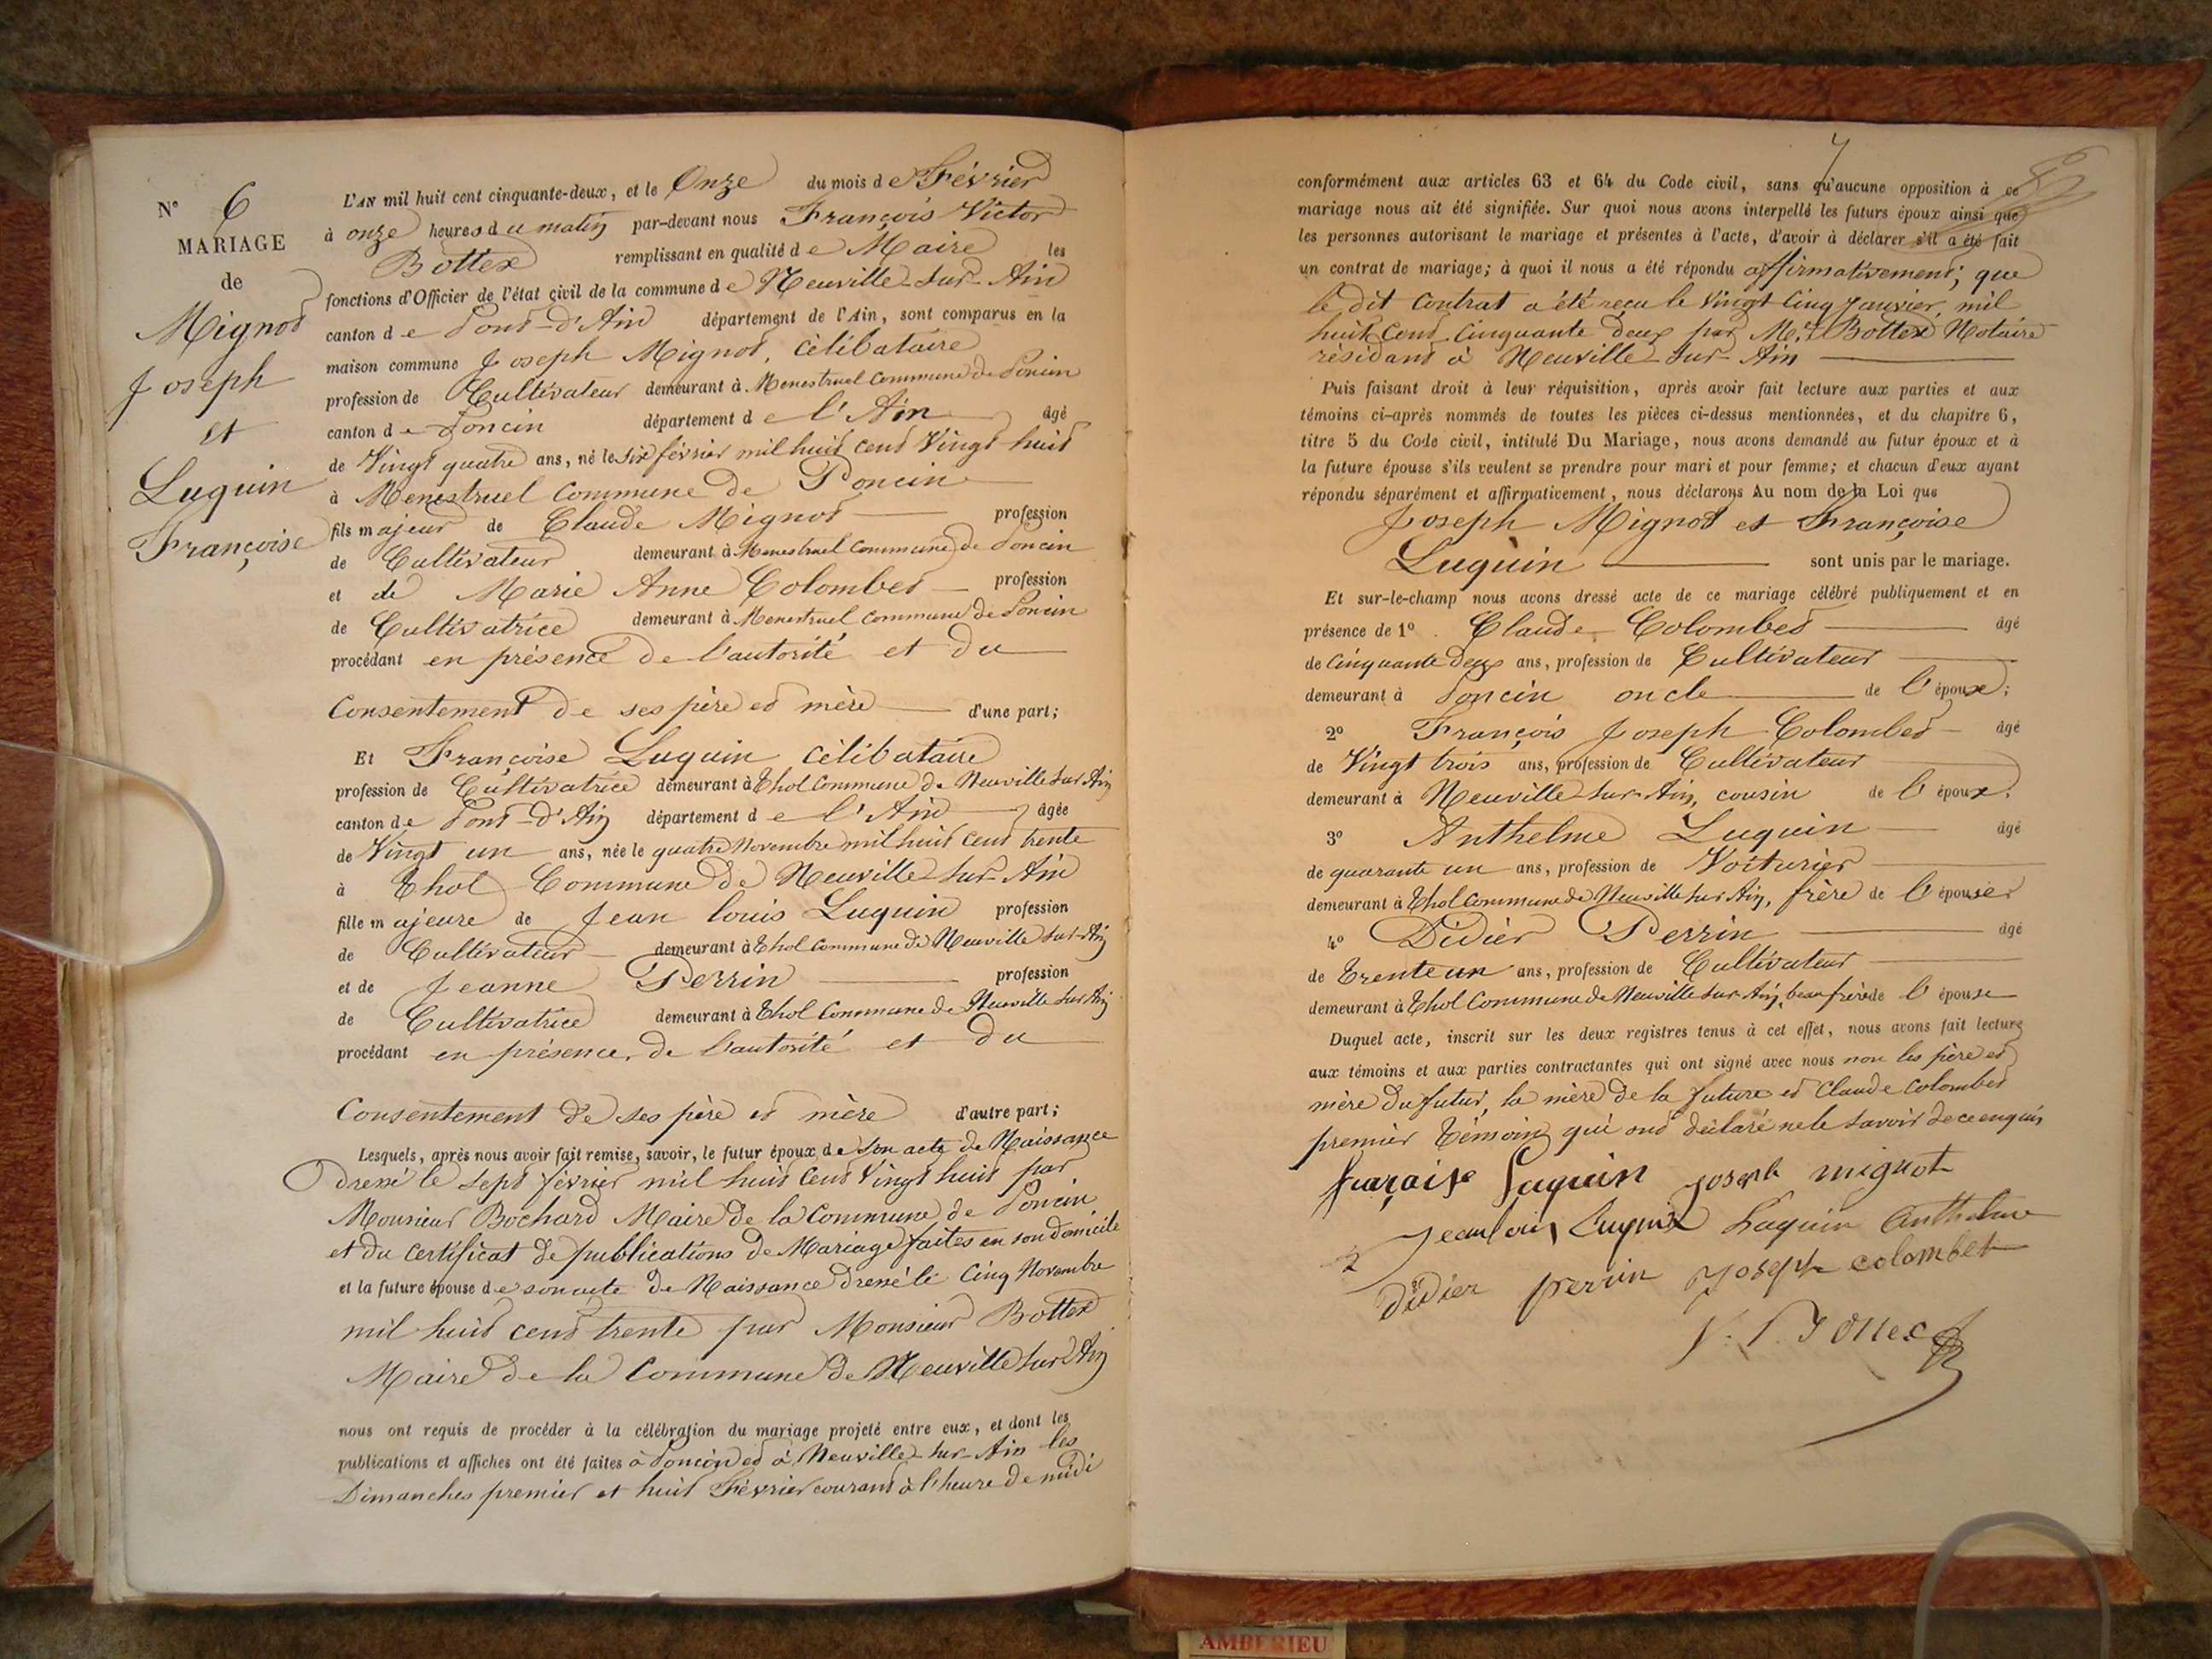 N° 6
MARIAGE
de
Mignot
Joseph
et
Luquin
Françoise
L'AN mil huit cent cinquante-deux, et le Onze du mois de Février
à onze heures du matin par-devant nous François Victor
Bottex remplissant en qualité de Maire les
fonctions d'Officier de l'état civil de la commune de Neuville-sur-Ain
canton de Pont-d'Ain département de l'Ain, sont comparus en la
maison commune Joseph Mignot, célibataire
profession de Cultivateur demeurant à Menestruel Commune de Poncin
canton de Poncin département de l'Ain âgé
de Vingt quatre ans, né le six février mil huit cent Vingt-huit
à Menestruel Commune de Poncin
fils majeur de Claude Mignot profession
de Cultivateur demeurant à Menestruel Commune de Poncin
et de Marie Anne Colombet profession
de Cultivatrice demeurant à Menestruel Commune de Poncin
procédant en présence de l'autorité et du
Consentement de ses père et mère d'une part;
Et Françoise Luquin célibataire
profession de Cultivatrice demeurant à Thol Commune de Neuville sur Ain
canton de Pont-d'Ain département de l'Ain âgée
de Vingt un ans, née le quatre Novembre mil huit cent trente
à Thol Commune de Neuville-sur-Ain
fille majeure de Jean louis Luquin profession
de Cultivateur demeurant à Thol Commune de Neuville sur-Ain
et de Jeanne Perrin profession
de Cultivatrice demeurant à Thol Commune de Neuville sur Ain
procédant en présence de l'autorité et du
Consentement de ses père et mère d'autre part;
Lesquels, après nous avoir fait remise, savoir, le futur époux de son acte de Naissance
Dressé le Sept février mil huit cent Vingt huit par
Monsieur Bochard Maire de la Commune de Poncin
et du Certificat de publications de Mariage faites en son domicile
et la future épouse de son acte de Naissance dressé le Cinq Novembre
mil huit cent trente par Monsieur Bottex
Maire de la Commune de Neuville sur Ain
nous ont requis de procéder à la célébration du mariage projeté entre eux, et dont les
publications et affiches ont été faites à Poncin et à Neuville-sur-Ain les
Dimanches premier et huit Février courant à l'heure de midi
7
conformément aux articles 63 et 64 du Code civil, sans qu'aucune opposition à ce
mariage nous ait été signifiée. Sur quoi nous avons interpellé les futurs époux ainsi que
les personnes autorisant le mariage et présentes à l'acte, d'avoir à déclarer s'il a été fait
un contrat de mariage; à quoi il nous a été répondu affirmativement; que
le dit Contrat a été reçu le Vingt Cinq Janvier mil
huit Cent Cinquante deux par Me. Bottex Notaire
résidant à Neuville-sur-Ain
Puis faisant droit à leur réquisition, après avoir fait lecture aux parties et aux
témoins ci-après nommés de toutes les pièces ci-dessus mentionnées, et du chapitre 6,
titre 5 du Code civil, intitulé Du Mariage, nous avons demandé au futur époux et à
la future épouse s'ils veulent se prendre pour mari et pour femme; et chacun d'eux ayant
répondu séparément et affirmativement, nous déclarons Au nom de la Loi que
Joseph Mignot et Françoise
Luquin sont unis par le mariage.
Et sur-le-champ nous avons dressé acte de ce mariage célébré publiquement et en
présence de 1° Claude Colombet âgé
de Cinquante deux ans, profession de Cultivateur
demeurant à Poncin oncle de l'époux;
2° François Joseph Colombet âgé
de Vingt trois ans, profession de Cultivateur
demeurant à Neuville-sur-Ain, cousin de l'époux.
3° Anthelme Luquin âgé
de quarante un ans, profession de Voiturier
demeurant à Thol Commune de Neuville sur Ain, frère de l'épouse
4° Didier Perrin âgé
de trente un ans, profession de Cultivateur
demeurant à Thol Commune de Neuville sur Ain, beau frère de l'épouse
Duquel acte, inscrit sur les deux registres tenus à cet effet, nous avons fait lecture
aux témoins et aux parties contractantes qui ont signé avec nous non les père et
mère du futur, la mère de la future et Claude Colombet
premier témoin qui ont déclaré ne le savoir de ce enquis
françoise Luquin joseph mignot
Jean louis Luquin Luquin Anthelme
Didier perrin joseph colombet
V. Bottex
AMBERIEU